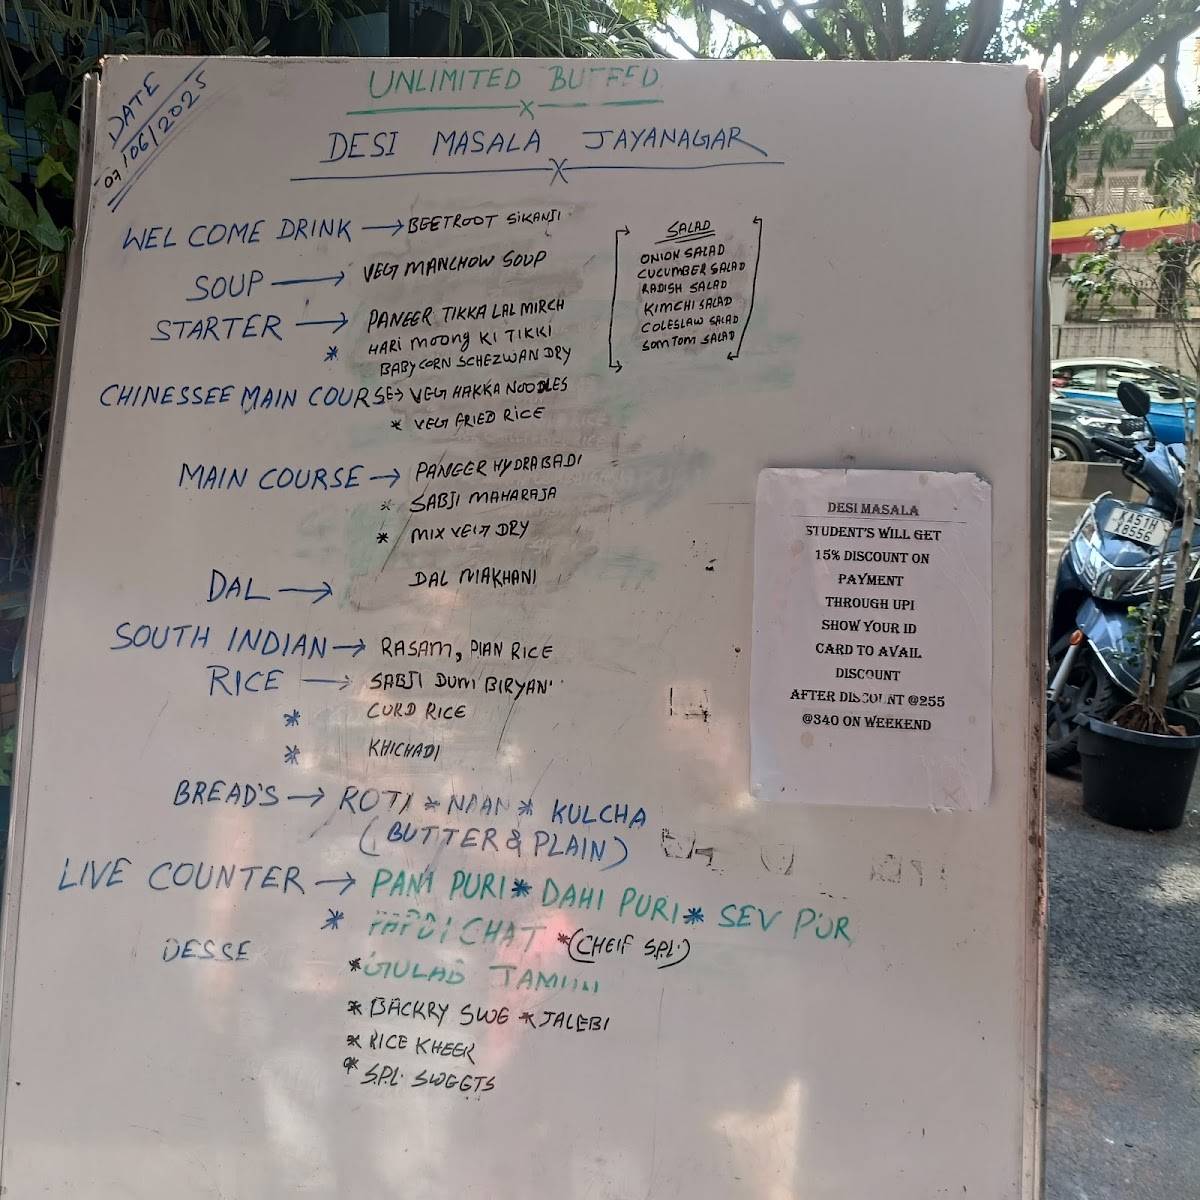 DATE
07/06/2025
UNLIMITED BUFFED
DESI MASALA JAYANAGAR
WEL COME DRINK → BEETROOT SIKANJI
SOUP → VEG MANCHOW SOUP
STARTER → PANEER TIKKA LAL MIRCH
* HARI MOONG KI TIKKI
BABYCORN SCHEZWAN DRY
CHINESSEE MAIN COURSE → VEG HAKKA NOODLES
* VEG FRIED RICE
MAIN COURSE → PANEER HYDRABADI
* SABJI MAHARAJA
* MIX VEG DRY
DAL → DAL MAKHANI
SOUTH INDIAN → RASAM, PLAN RICE
RICE → SABJI DUM BIRYANI
* CURD RICE
* KHICHADI
BREAD'S → ROTI * NAAN * KULCHA
(BUTTER & PLAIN)
LIVE COUNTER → PANI PURI * DAHI PURI * SEV PUR
* PAPDI CHAT * (CHEIF SPL.)
DESSE
* GULAB JAMUN
* BACKRY SWE * JALEBI
* RICE KHEER
* S.P.L. SWEETS
SALAD
ONION SALAD
CUCUMBER SALAD
RADISH SALAD
KIMCHI SALAD
COLESLAW SALAD
SOMTOM SALAD
DESI MASALA
STUDENT'S WILL GET
15% DISCOUNT ON
PAYMENT
THROUGH UPI
SHOW YOUR ID
CARD TO AVAIL
DISCOUNT
AFTER DISCOUNT @255
@340 ON WEEKEND